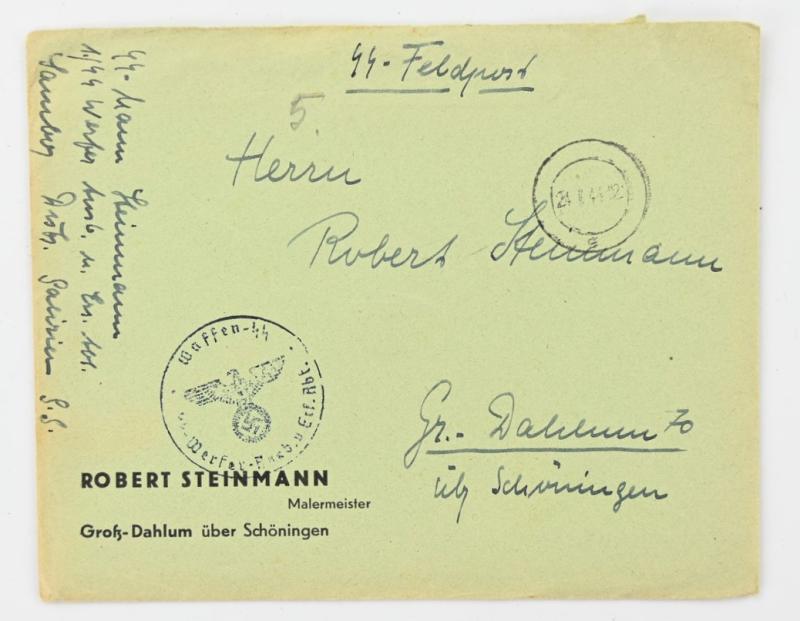 SS-Feldpost
5.
Herrn
Robert Steinmann
Gr.-Dahlum 70
üb Schöningen
SS-Mann Steinmann
1./SS Werfer Ausb. u. Ers. Abt.
Sambor Distr. Galizien
24 44-12
Waffen-SS
SS-Werfer-Ausb. u Ers. Abt.
ROBERT STEINMANN
Malermeister
Groß-Dahlum über Schöningen